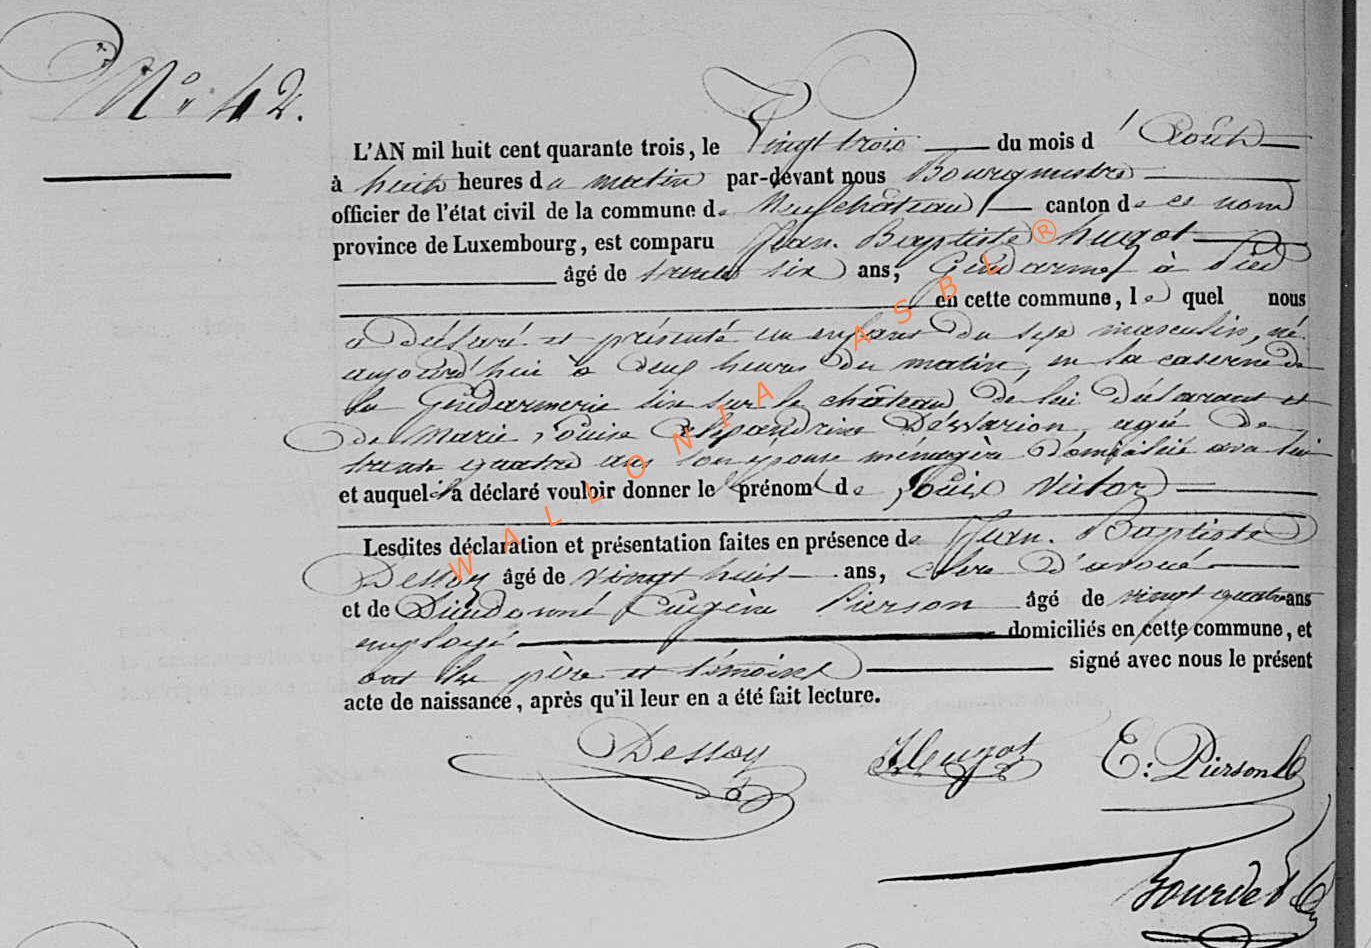 N° 42.
L'AN mil huit cent quarante trois, le Vingt trois du mois d'Août
à huit heures du matin par-devant nous Bourgmestre
officier de l'état civil de la commune de Neufchâteau canton de ce nom
province de Luxembourg, est comparu Jean Baptiste hugot
âgé de trente six ans, Gendarme à pied
en cette commune, lequel nous
a déclaré et présenté un enfant du sexe masculin, né
aujourd'hui à deux heures du matin, en la caserne de
la Gendarmerie sise sur le château de lui déclarant et
de Marie Louise Alexandrine agée de
trente quatre ans son épouse ménagère domiciliée avec lui
et auquel il a déclaré vouloir donner le prénom de Louis Victor
Lesdites déclaration et présentation faites en présence de Jean Baptiste
Dessoy âgé de vingt huit ans, clerc d'avoué
et de Dieudonné Eugène Pierson âgé de vingt quatre ans
employé domiciliés en cette commune, et
ont les père et témoins signé avec nous le présent
acte de naissance, après qu'il leur en a été fait lecture.
Dessoy Hugot E: Pierson
WALLONIA ASBL ®